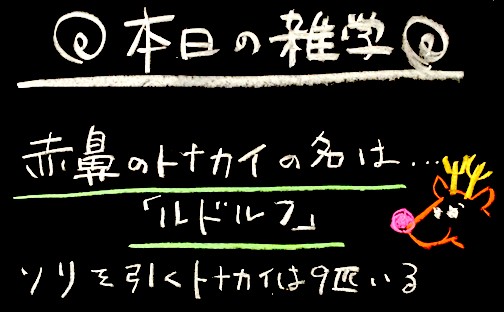 本日の雑学
赤鼻のトナカイの名は…
「ルドルフ」
ソリを引くトナカイは9匹いる